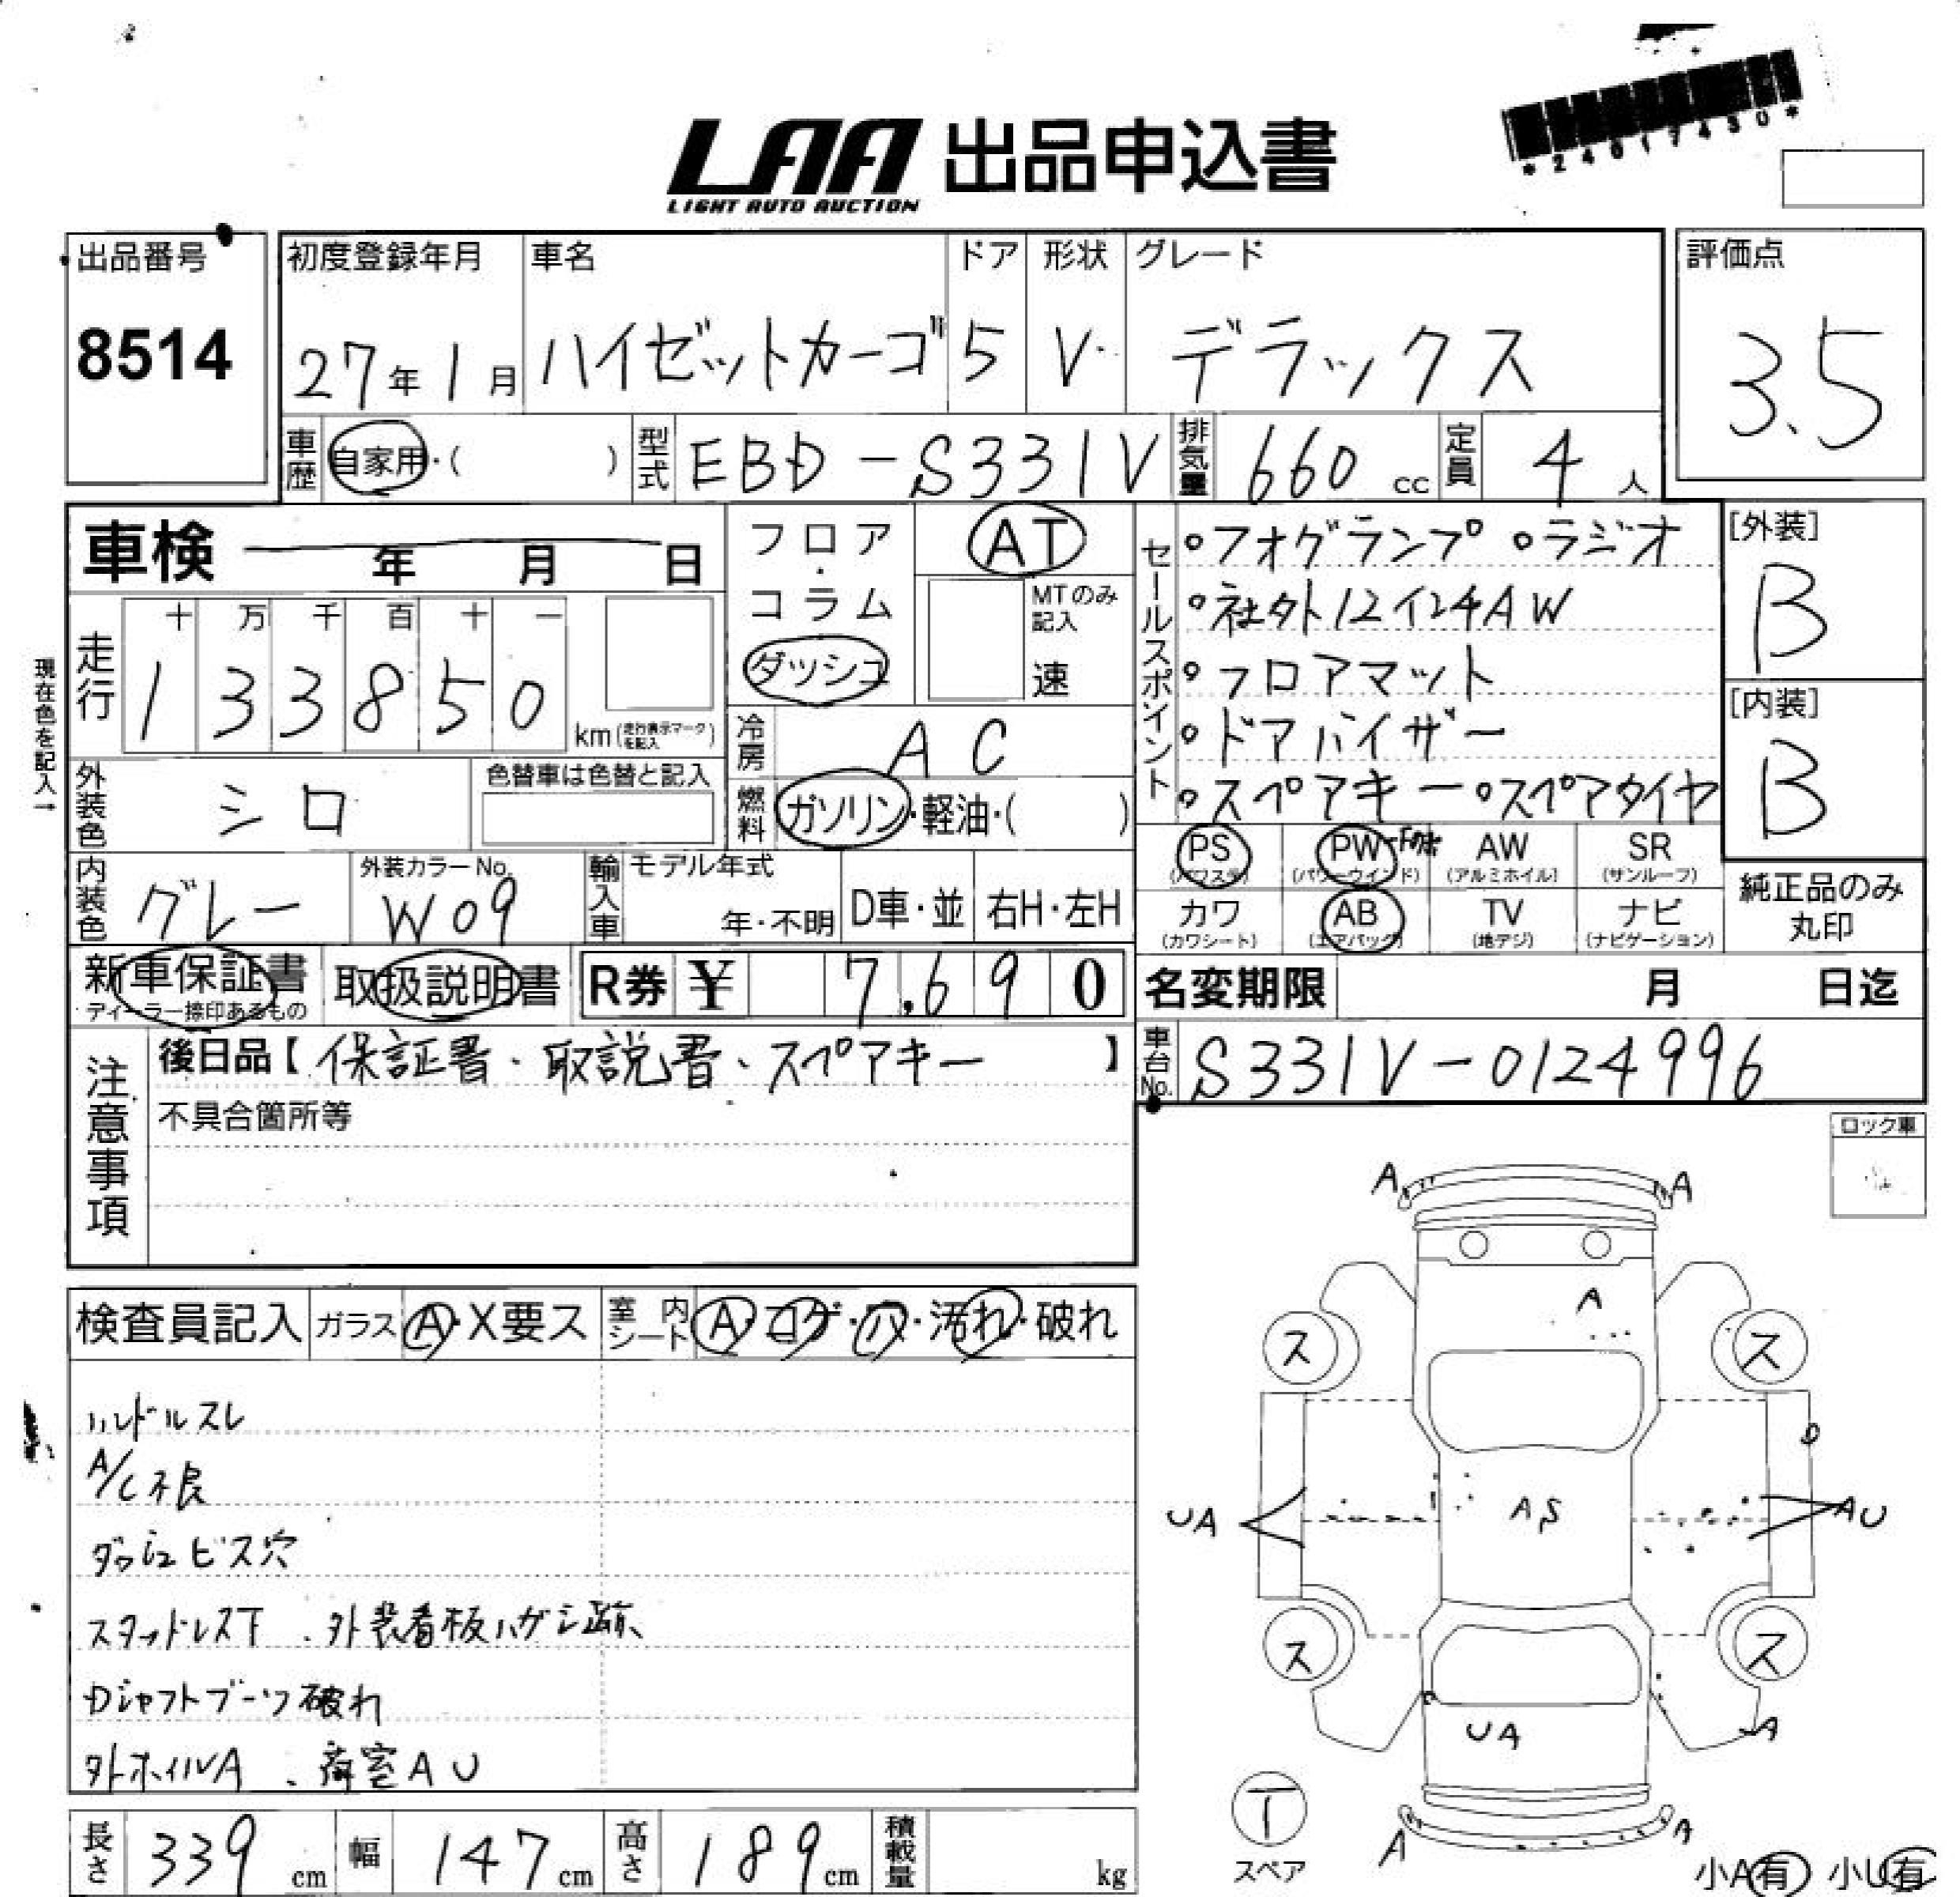 *24017430*
LAA 出品申込書
LIGHT AUTO AUCTION
出品番号 初度登録年月 車名 ドア 形状 グレード 評価点
8514 27年1月 ハイゼットカーゴ 5 V デラックス 3.5
車歴 自家用・( ) 型式 EBD-S331V 排気量 660cc 定員 4人
車検 年 月 日 フロア・コラム ダッシュ AT MTのみ記入 速
走行 十 万 千 百 十 一
133850 km(走行表示マークを記入)
現在色を記入→
冷房 AC
外装色 シロ 色替車は色替と記入 燃料 ガソリン・軽油・( )
セールスポイント
°フォグランプ °ラジオ
°社外12インチAW
°フロアマット
°ドアバイザー
°スペアキー °スペアタイヤ
[外装] B
[内装] B
内装色 グレー 外装カラーNo. W09 輸入車 モデル年式 年・不明 D車・並 右H・左H
PS (パワステ) PW (パワーウインド) AW (アルミホイル) SR (サンルーフ)
カワ (カワシート) AB (エアバッグ) TV (地デジ) ナビ (ナビゲーション)
純正品のみ丸印
新車保証書 ディーラー捺印あるもの 取扱説明書 R券 ¥ 7,690 名変期限 月 日迄
注意事項 後日品【保証書・取説書・スペアキー】 車台No. S331V-0124996
不具合箇所等
ロック車
検査員記入 ガラス A・X要ス 室内シート A・コゲ・穴・汚れ・破れ
ハンドルスレ
A/C不良
ダッシュビス穴
スタッドレス下、外装看板ハガシ跡、
Dシャフトブーツ破れ
外ホイルA、荷室AU
A A
A
ス ス
D
UA AS AU
ス ス
UA A
T
スペア
A A
小A有 小U有
長さ 339cm 幅 147cm 高さ 189cm 積載量 kg